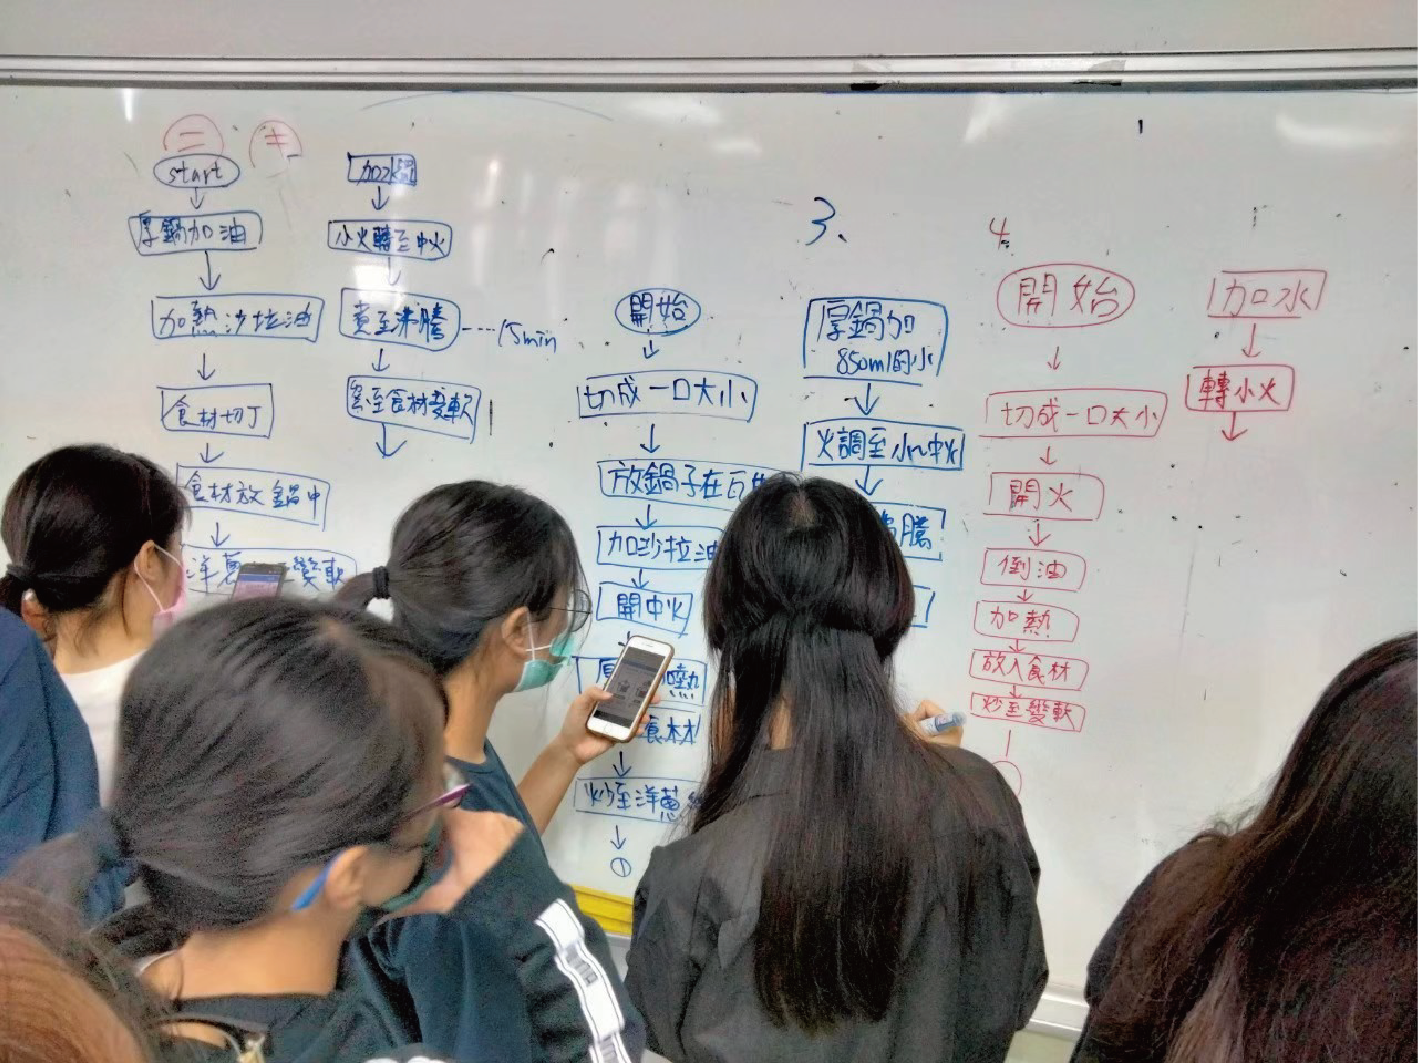 二
start
厚鍋加油
加熱沙拉油
食材切丁
食材放鍋中
洋蔥
變軟
加水
小火轉至中火
煮至沸騰
15min
至食材變軟
開始
切成一口大小
放鍋子在瓦
加沙拉油
開中火
食材
炒至洋蔥
①
3、
厚鍋加
850ml的水
火調至小~中火
騰
4.
開始
切成一口大小
開火
倒油
加熱
放入食材
炒至變軟
加水
轉小火